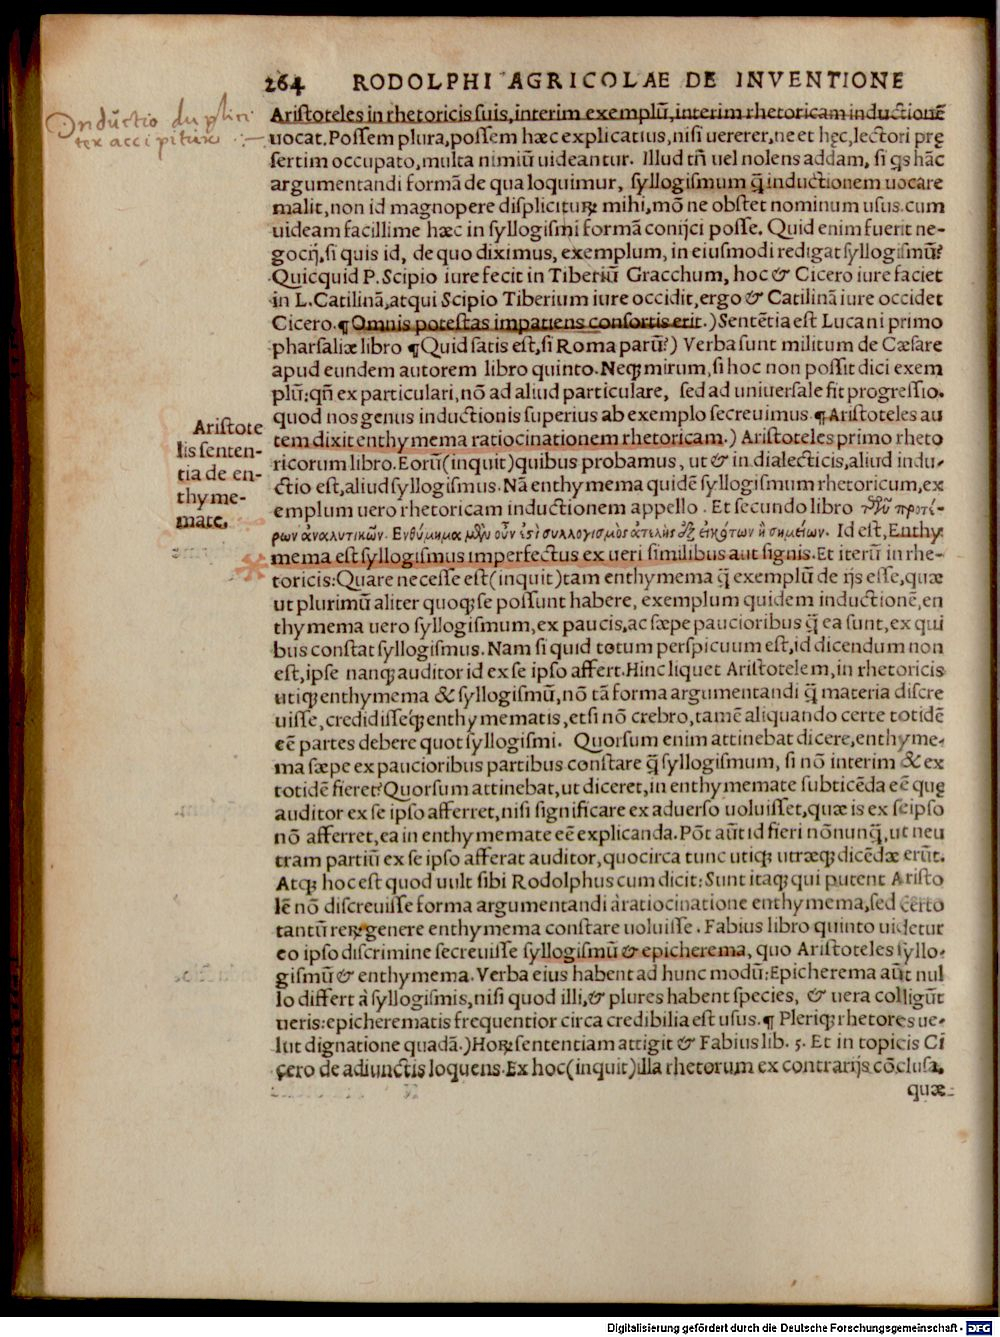 264 RODOLPHI AGRICOLAE DE INVENTIONE
Inductio dupliciter accipitur
Aristoteles in rhetoricis suis, interim exemplũ, interim rhetoricam inductionẽ
uocat. Possem plura, possem hæc explicatius, nisi uererer, ne et hęc, lectori prę
sertim occupato, multa nimiũ uideantur. Illud tñ uel nolens addam, si qs hãc
argumentandi formã de qua loquimur, syllogismum q̃ inductionem uocare
malit, non id magnopere displicitur mihi, mõ ne obstet nominum usus. cum
uideam facillime hæc in syllogismi formã conijci posse. Quid enim fuerit ne-
gocij, si quis id, de quo diximus, exemplum, in eiusmodi redigat syllogismũ?
Quicquid P. Scipio iure fecit in Tiberiũ Gracchum, hoc & Cicero iure faciet
in L. Catilinã, atqui Scipio Tiberium iure occidit, ergo & Catilinã iure occidet
Cicero. ¶ Omnis potestas impatiens consortis erit.) Sentẽtia est Lucani primo
pharsaliæ libro ¶ Quid satis est, si Roma parũ?) Verba sunt militum de Cæsare
apud eundem autorem libro quinto. Neq; mirum, si hoc non possit dici exem
plũ: qñ ex particulari, nõ ad aliud particulare, sed ad uniuersale fit progressio.
quod nos genus inductionis superius ab exemplo secreuimus. ¶ Aristoteles au
tem dixit enthymema ratiocinationem rhetoricam.) Aristoteles primo rheto
ricorum libro. Eorũ (inquit) quibus probamus, ut & in dialecticis, aliud indu-
ctio est, aliud syllogismus. Nã enthymema quidẽ syllogismum rhetoricum, ex
emplum uero rhetoricam inductionem appello. Et secundo libro τῶν προτέ-
ρων ἀναλυτικῶν. Ενθύμημα μὲν οὖν ἐστὶ συλλογισμὸς ἀτελὴς ἐξ εἰκότων ἢ σημείων. Id est, Enthy
mema est syllogismus imperfectus ex ueri similibus aut signis. Et iterũ in rhe-
toricis: Quare necesse est (inquit) tam enthymema q̃ exemplũ de ijs esse, quæ
ut plurimũ aliter quoq; se possunt habere, exemplum quidem inductionẽ, en
thymema uero syllogismum, ex paucis, ac sæpe paucioribus q̃ ea sunt, ex qui
bus constat syllogismus. Nam si quid totum perspicuum est, id dicendum non
est, ipse nanq; auditor id ex se ipso affert. Hinc liquet Aristotelem, in rhetoricis
utiq; enthymema & syllogismũ, nõ tã forma argumentandi q̃ materia discre
uisse, credidisseq́; enthymematis, etsi nõ crebro, tamẽ aliquando certe totidẽ
eẽ partes debere quot syllogismi. Quorsum enim attinebat dicere, enthyme-
ma sæpe ex paucioribus partibus constare q̃ syllogismum, si nõ interim & ex
totidẽ fieret? Quorsum attinebat, ut diceret, in enthymemate subticẽda eẽ quę
auditor ex se ipso afferret, nisi significare ex aduerso uoluisset, quæ is ex se ipso
nõ afferret, ea in enthymemate eẽ explicanda. Põt aũt id fieri nõnunq̃, ut neu
tram partiũ ex se ipso afferat auditor, quocirca tunc utiq; utræq; dicẽdæ erũt.
Atq; hoc est quod uult sibi Rodolphus cum dicit: Sunt itaq; qui putent Aristo
lẽ nõ discreuisse forma argumentandi à ratiocinatione enthymema, sed certo
tantũ rerꝝ genere enthymema constare uoluisse. Fabius libro quinto uidetur
eo ipso discrimine secreuisse syllogismũ & epicherema, quo Aristoteles syllo-
gismũ & enthymema. Verba eius habent ad hunc modũ: Epicherema aũt nul
lo differt à syllogismis, nisi quod illi, & plures habent species, & uera colligũt
ueris: epicherematis frequentior circa credibilia est usus. ¶ Pleriq; rhetores ue-
lut dignatione quadã.) Horꝝ sententiam attigit & Fabius lib. 5. Et in topicis Ci
cero de adiunctis loquens. Ex hoc (inquit) illa rhetorum ex contrarijs cõclusa,
quæ
Aristote
lis senten-
tia de en-
thyme-
mate.
Digitalisierung gefördert durch die Deutsche Forschungsgemeinschaft - DFG